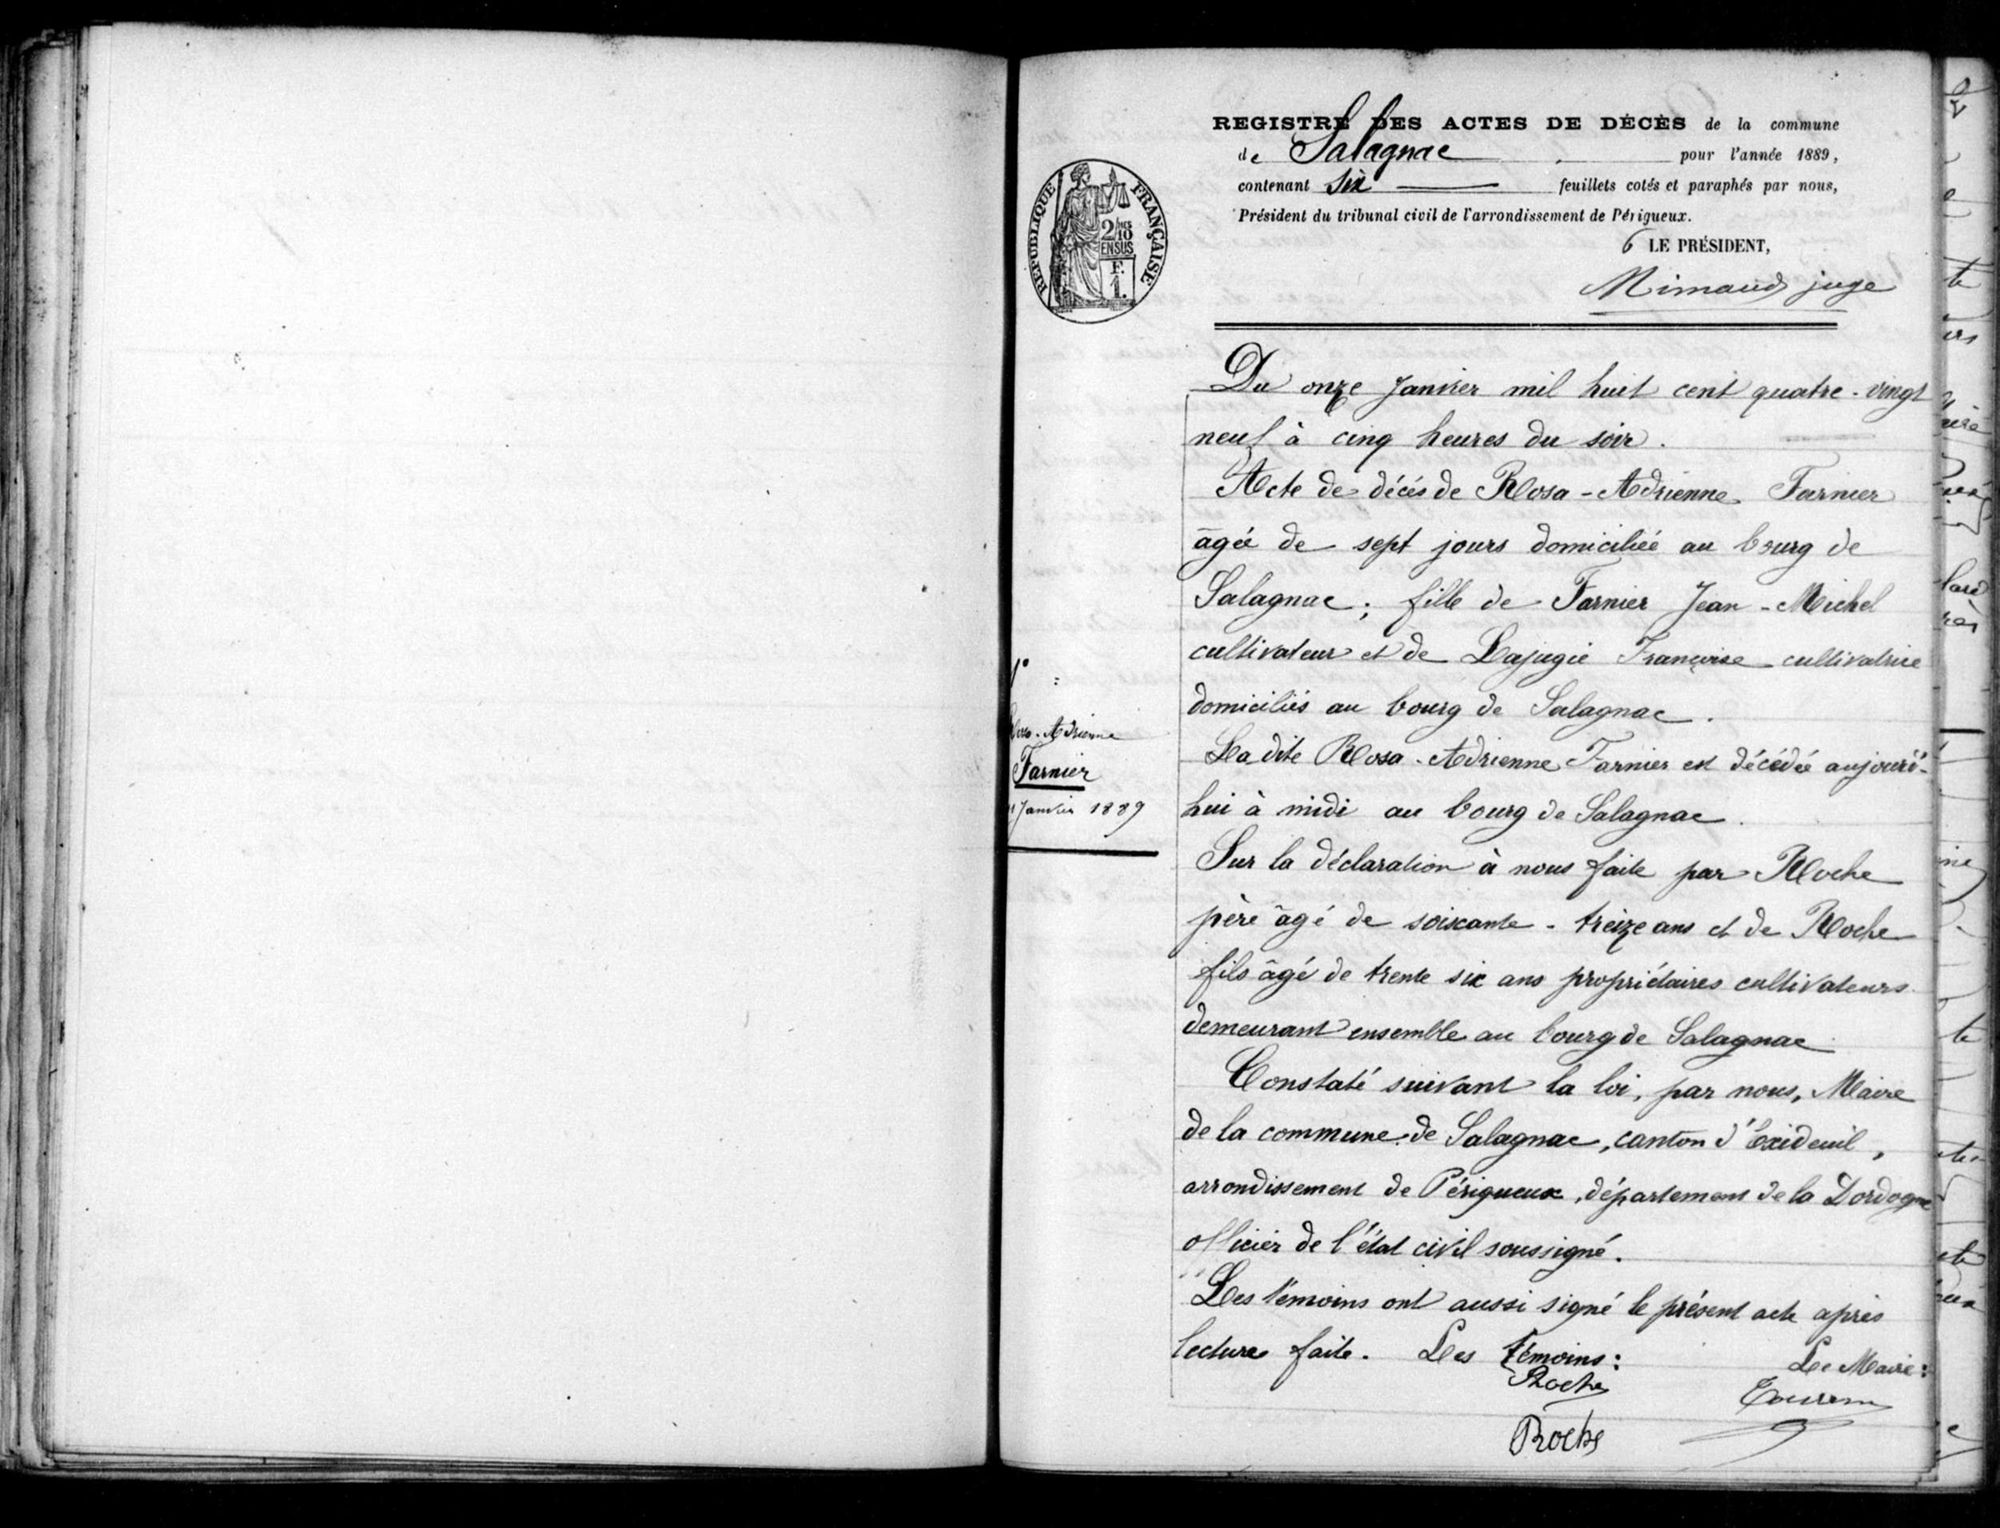 REGISTRE DES ACTES DE DÉCÈS de la commune
de Salagnac pour l'année 1889,
contenant six feuillets cotés et paraphés par nous,
Président du tribunal civil de l'arrondissement de Périgueux.
LE PRÉSIDENT,
Mimaud juge
RÉPUBLIQUE FRANÇAISE
2/10
EN SUS
F.
1.
Du onze Janvier mil huit cent quatre-vingt
neuf à cinq heures du soir.
Acte de décés de Rosa-Adrienne Farnier
âgée de sept jours domiciliée au bourg de
Salagnac; fille de Farnier Jean-Michel
cultivateur et de Lajugie Françoise cultivatrice
domiciliés au bourg de Salagnac.
La dite Rosa-Adrienne Farnier est décédée aujourd'-
hui à midi au bourg de Salagnac.
Sur la déclaration à nous faite par Roche
père âgé de soixante-treize ans et de Roche
fils âgé de trente six ans propriétaires cultivateurs
demeurant ensemble au bourg de Salagnac
Constaté suivant la loi, par nous, Maire
de la commune de Salagnac, canton d'Exideuil,
arrondissement de Périgueux, département de la Dordogne
officier de l'état civil soussigné.
Les témoins ont aussi signé le présent acte après
lecture faite. Les témoins: Le Maire:
Roche
Roche
1°
Rosa-Adrienne
Farnier
11 Janvier 1889